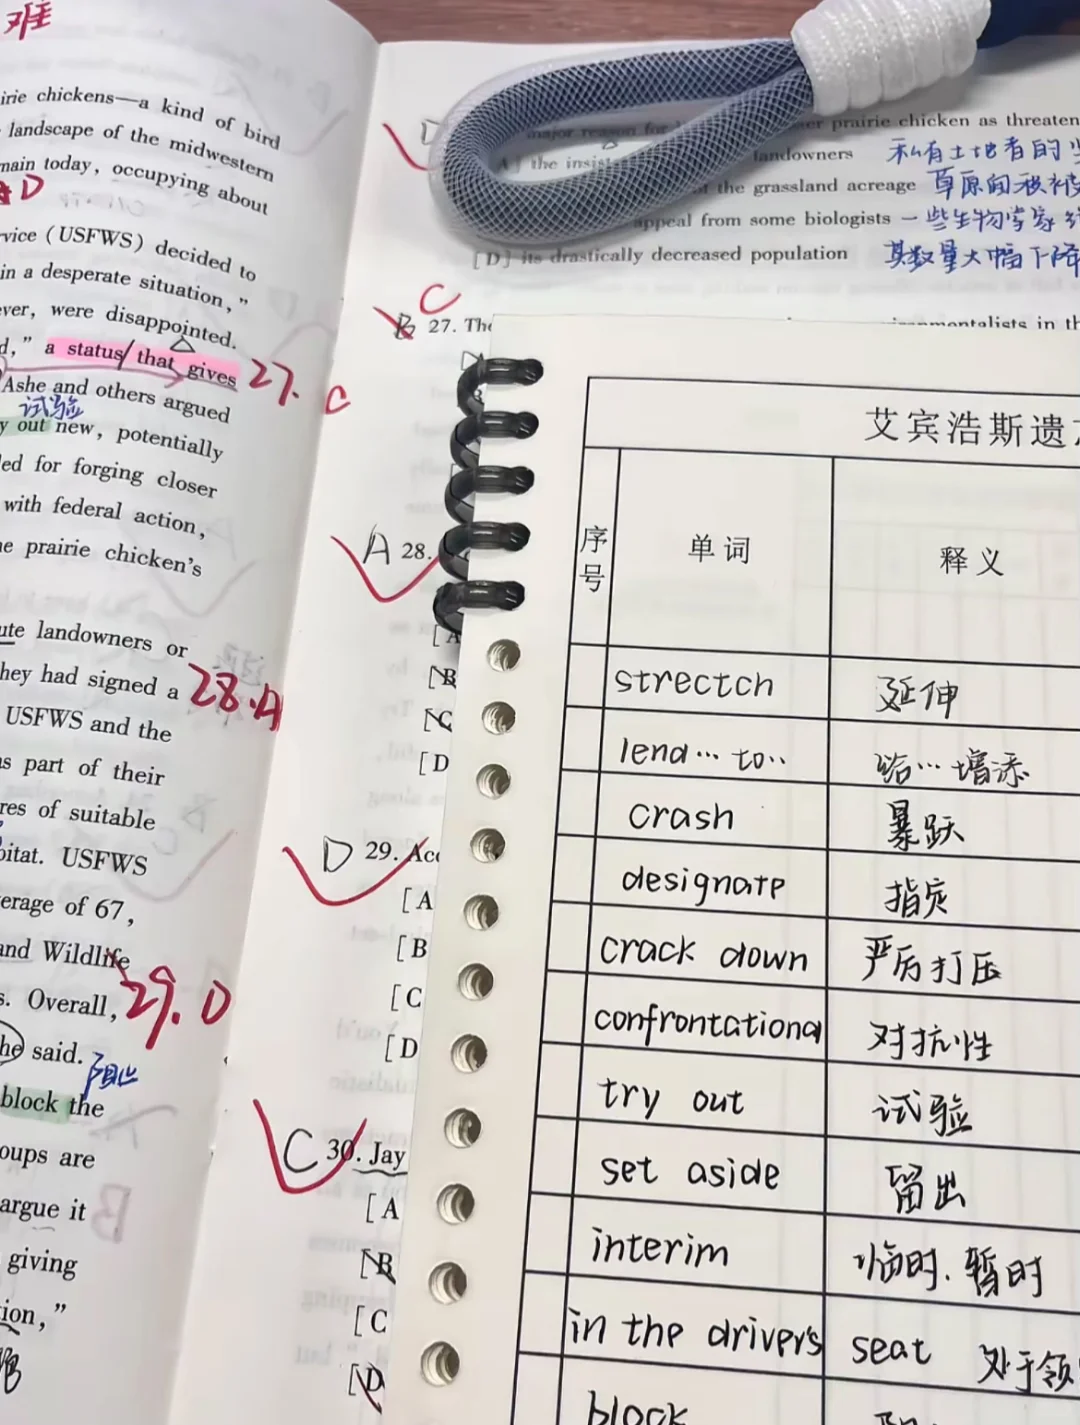 难
irie chickens—a kind of bird
landscape of the midwestern
main today, occupying about
D
vice (USFWS) decided to
in a desperate situation,"
ver, were disappointed.
d," a status/ that gives
27. C
Ashe and others argued
试验
y out new, potentially
led for forging closer
with federal action,
ne prairie chicken's
ute landowners or
hey had signed a
28.A
USFWS and the
as part of their
res of suitable
bitat. USFWS
erage of 67,
and Wildlife
s. Overall,
29. D
he said.
阻止
block the
oups are
argue it
giving
ion,"
major reason for
er prairie chicken as threaten
A] the insist
landowners 私有土地者的
the grassland acreage 草原面积被
appeal from some biologists 一些生物学家
[D] its drastically decreased population 其数量大幅下降
C
B 27. The
mentalists in th
A 28.
[A
[B
[C
[D
D 29. Acc
[A
[B
[C
[D
C 30. Jay
[A
[B
[C
[D
艾宾浩斯遗
序号 单词 释义
strectch 延伸
lend…to.. 给…增添
crash 暴跌
designate 指定
crack down 严厉打压
confrontational 对抗性
try out 试验
set aside 留出
interim 临时.暂时
in the driver's seat 处于领
block